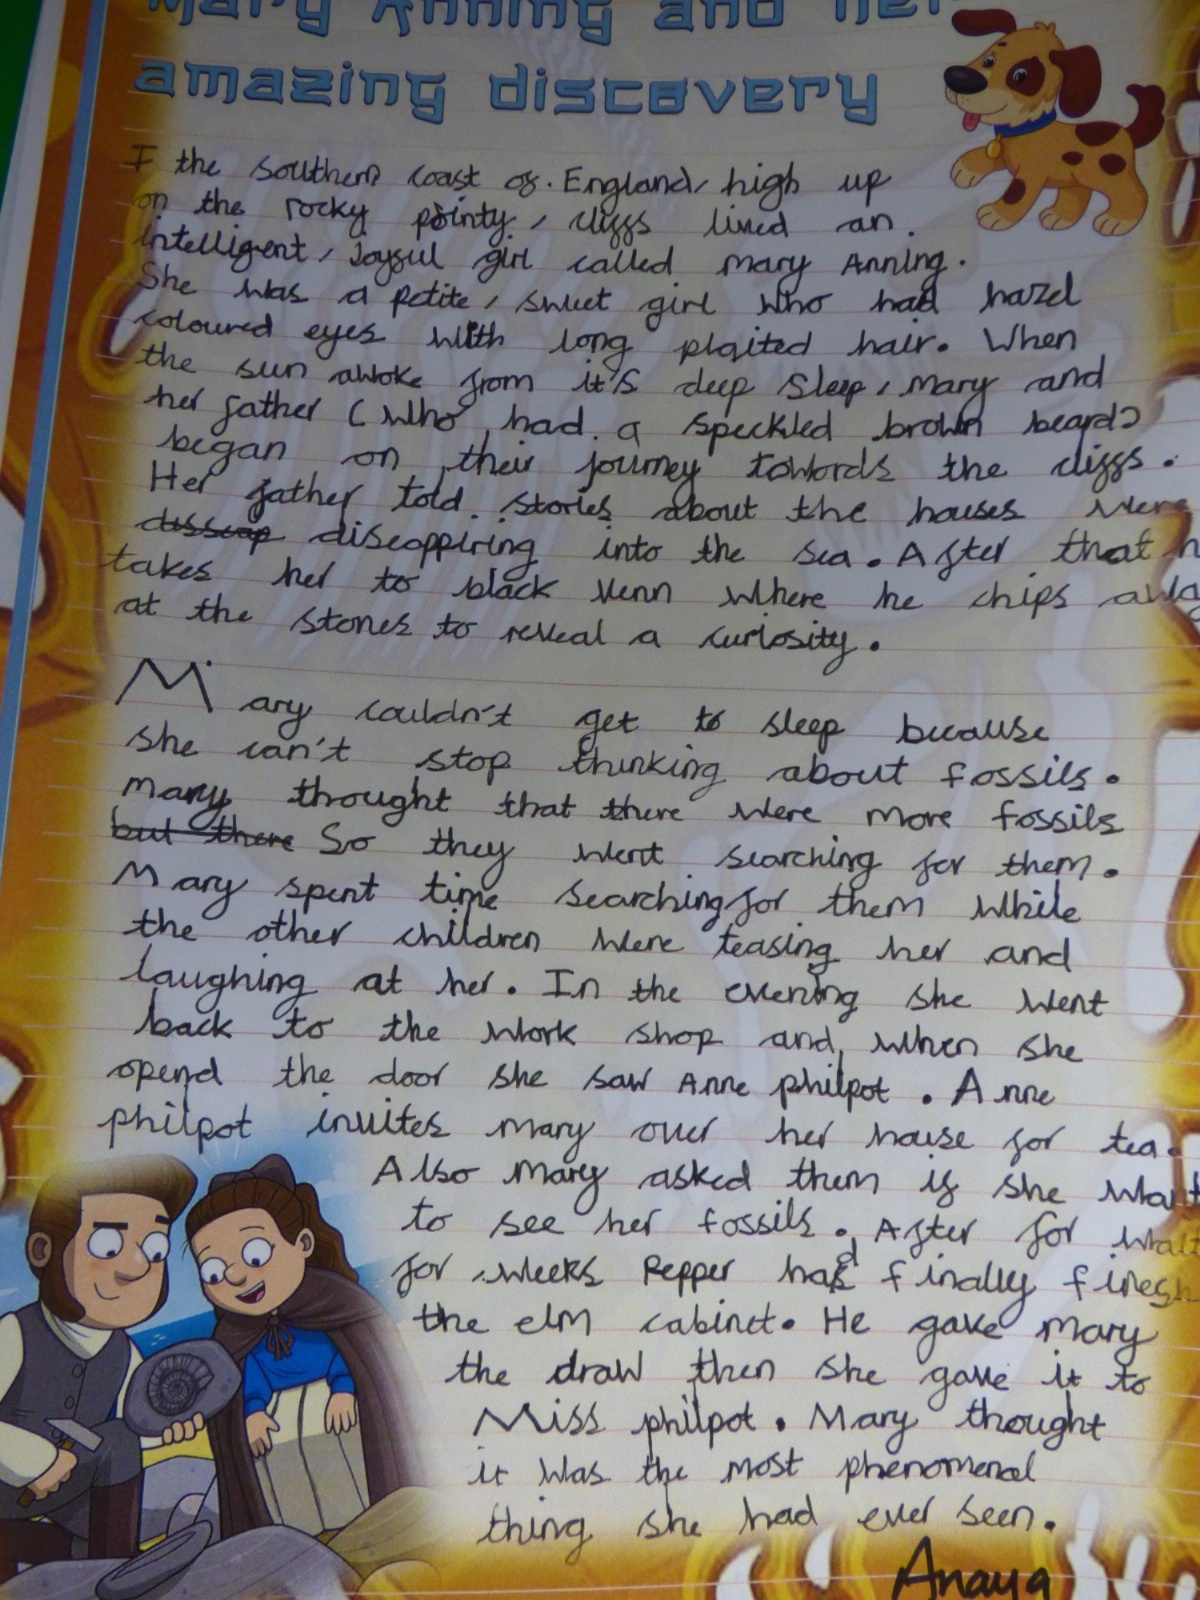 Mary Anning and her
amazing discovery
I the southern coast of. England, high up
on the rocky pointy, cliffs lived an.
intelligent, Joyful girl called Mary Anning.
She was a petite, sweet girl who had hazel
coloured eyes with long plaited hair. When
the sun awoke from it's deep sleep, Mary and
her father (who had a speckled brown beard)
began on their journey towords the cliffs.
Her father told stories about the houses were
disscap diseappiring into the sea. After that h
takes her to black Venn where he chips awa
at the stones to reveal a curiosity.
Mary couldn't get to sleep because
she can't stop thinking about fossils.
Mary thought that there were more fossils
but there So they went searching for them.
Mary spent time searching for them while
the other children were teasing her and
laughing at her. In the evening she went
back to the work shop and when she
opend the door she saw Anne philpot. Anne
philpot invites mary over her house for tea.
Also Mary asked them if she want
to see her fossils. After for wait
for weeks Pepper had finally finesh
the elm cabinet. He gave Mary
the draw then she gave it to
Miss philpot. Mary thought
it was the most phenomenal
thing she had ever seen.
Anaya